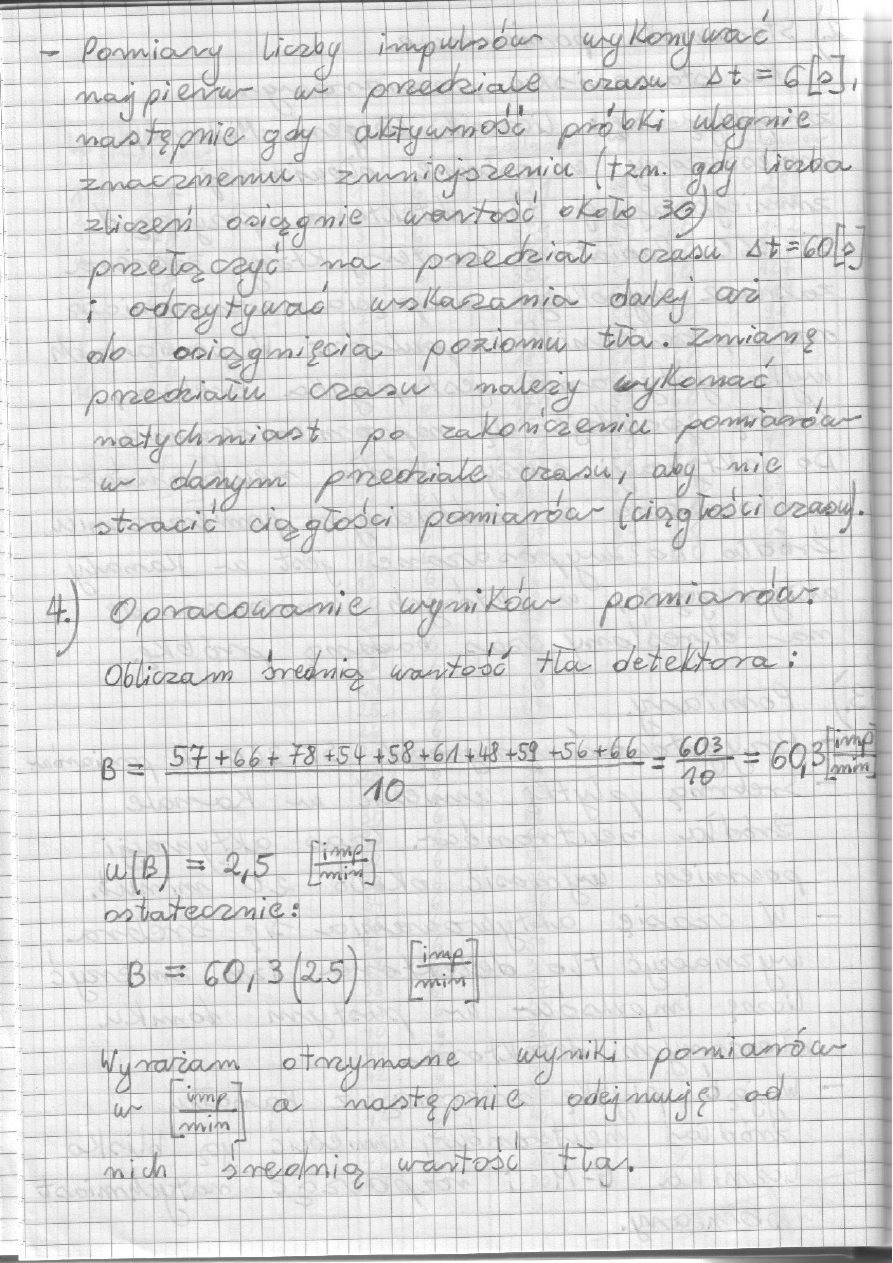 - Pomiary liczby impulsów wykonywać
najpierw w przedziale czasu Δt = 6[s],
następnie gdy aktywność próbki ulegnie
znacznemu zmniejszeniu (tzn. gdy liczba
zliczeń osiągnie wartość około 30)
przełączyć na przedział czasu Δt=60[s]
i odczytywać wskazania dalej aż
do osiągnięcia poziomu tła. Zmianę
przedziału czasu należy wykonać
natychmiast po zakończeniu pomiarów
w danym przedziale czasu, aby nie
stracić ciągłości pomiarów (ciągłości czasu).
4.) Opracowanie wyników pomiarów:
Obliczam średnią wartość tła detektora:
B = \frac{57+66+78+54+58+61+48+59+56+66}{10} = \frac{603}{10} = 60,3 [\frac{imp}{min}]
u(B) = 2,5 [\frac{imp}{min}]
ostatecznie:
B = 60,3(25) [\frac{imp}{min}]
Wyrażam otrzymane wyniki pomiarów
w [\frac{imp}{min}] a następnie odejmuję od
nich średnią wartość tła.